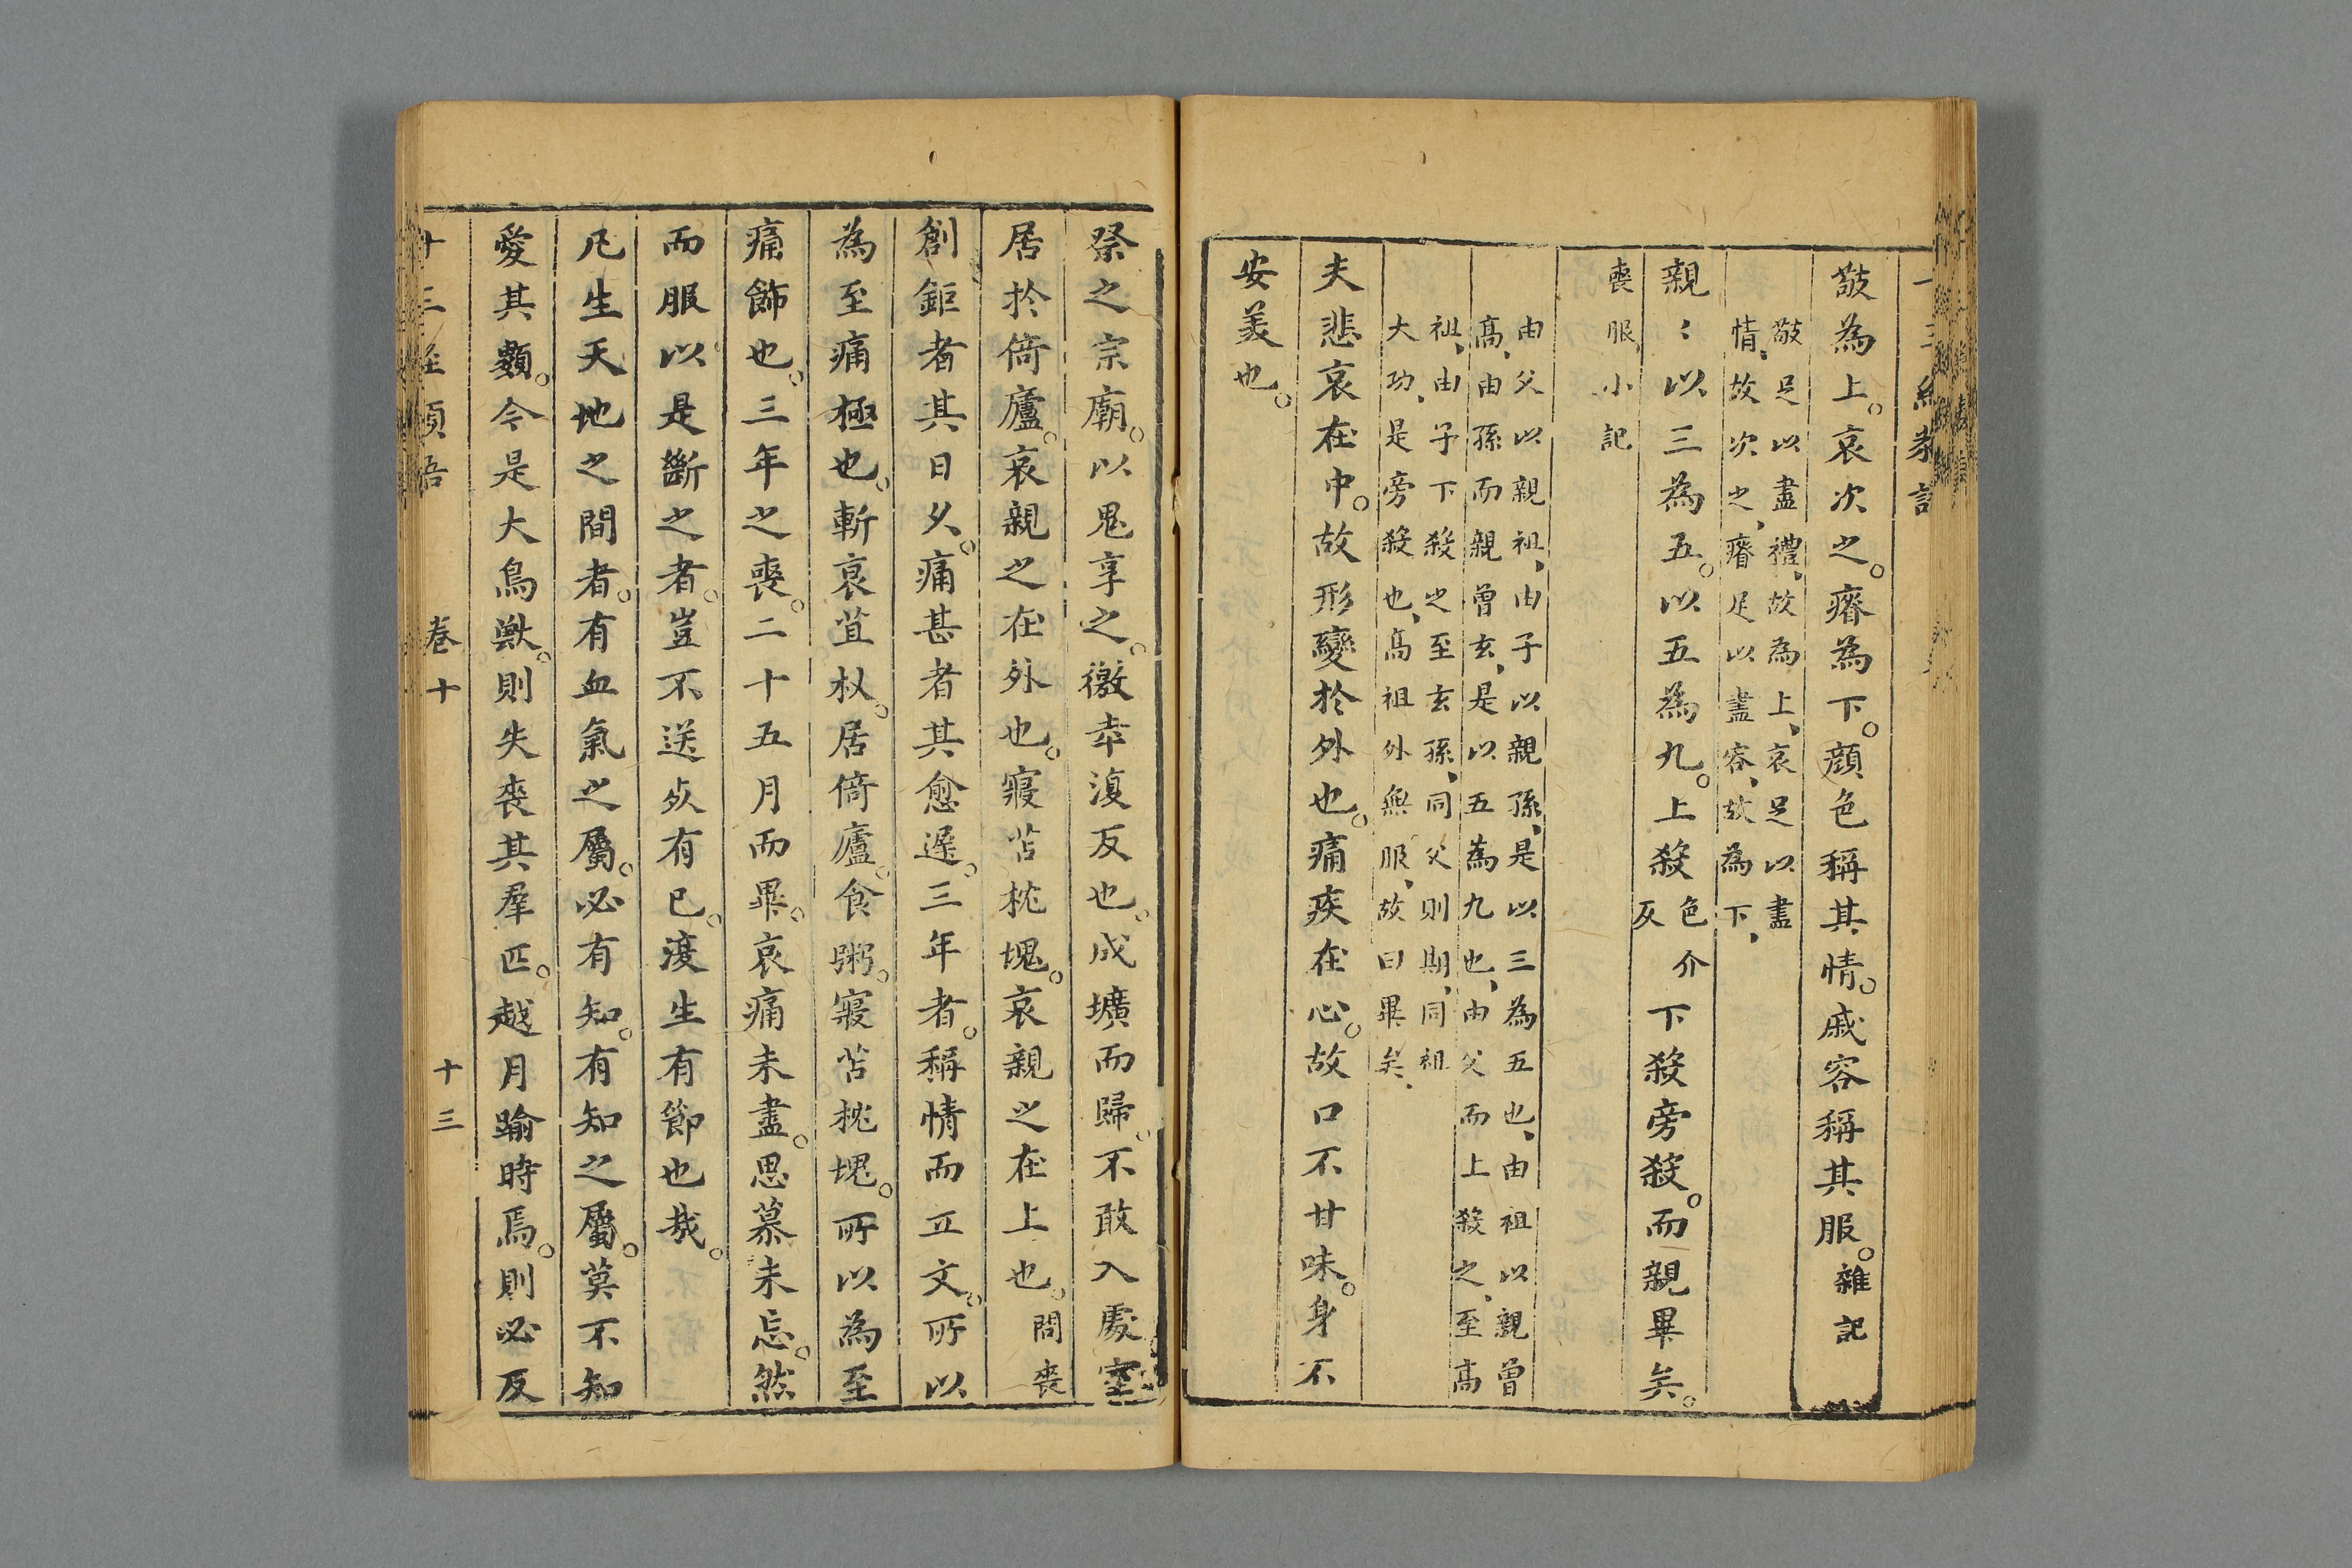 敬為上。哀次之。瘠為下。顔色稱其情。戚容稱其服。雜記
敬足以盡禮、故為上、哀足以盡
情、故次之、瘠足以盡容、故為下、
親〻以三為五。以五為九。上殺色介反下殺旁殺。而親畢矣。
喪服小記
由父以親祖、由子以親孫、是以三為五也、由祖以親曾
高、由孫而親曾玄、是以五為九也、由父而上殺之、至高
祖、由子下殺之至玄孫、同父則期、同祖
大功、是旁殺也、高祖外無服、故曰畢矣、
夫悲哀在中。故形變於外也。痛疾在心。故口不甘味。身不
安美也。
祭之宗廟。以鬼享之。徼幸復反也。成壙而歸。不敢入處室
居於倚廬。哀親之在外也。寢苫枕塊。哀親之在上也。問喪
創鉅者其日久。痛甚者其愈遲。三年者。稱情而立文。所以
為至痛極也。斬衰苴杖。居倚廬。食粥。寢苫枕塊。所以為至
痛飾也。三年之喪。二十五月而畢。哀痛未盡。思慕未忘。然
而服以是斷之者。豈不送死有已。復生有節也哉。
凡生天地之間者。有血氣之屬。必有知。有知之屬。莫不知
愛其類。今是大鳥獸。則失喪其羣匹。越月踰時焉。則必反
卷十 十三